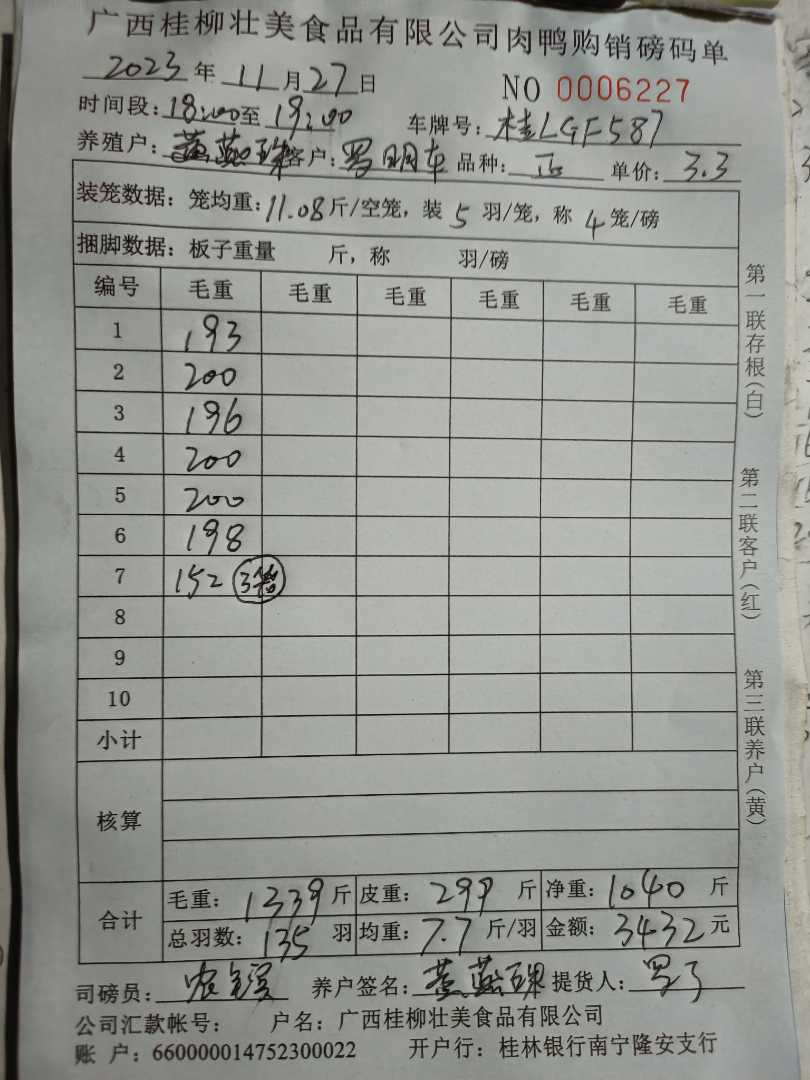 广西桂柳壮美食品有限公司肉鸭购销磅码单
2023年11月27日 NO 0006227
时间段：18:00至19:00 车牌号：桂LGF587
养殖户： 客户：罗明车 品种：正 单价：3.3
装笼数据：笼均重：11.08斤/空笼，装5羽/笼，称4笼/磅
捆脚数据：板子重量 斤，称 羽/磅
编号 毛重 毛重 毛重 毛重 毛重 毛重
1 193
2 200
3 196
4 200
5 200
6 198
7 152 3笼
8
9
10
小计
核算
合计 毛重：1339斤 皮重：299斤 净重：1040斤
总羽数：135羽 均重：7.7斤/羽 金额：3432元
司磅员： 养户签名： 提货人：
公司汇款帐号： 户名：广西桂柳壮美食品有限公司
账 户：660000014752300022 开户行：桂林银行南宁隆安支行
第一联存根（白）
第二联客户（红）
第三联养户（黄）